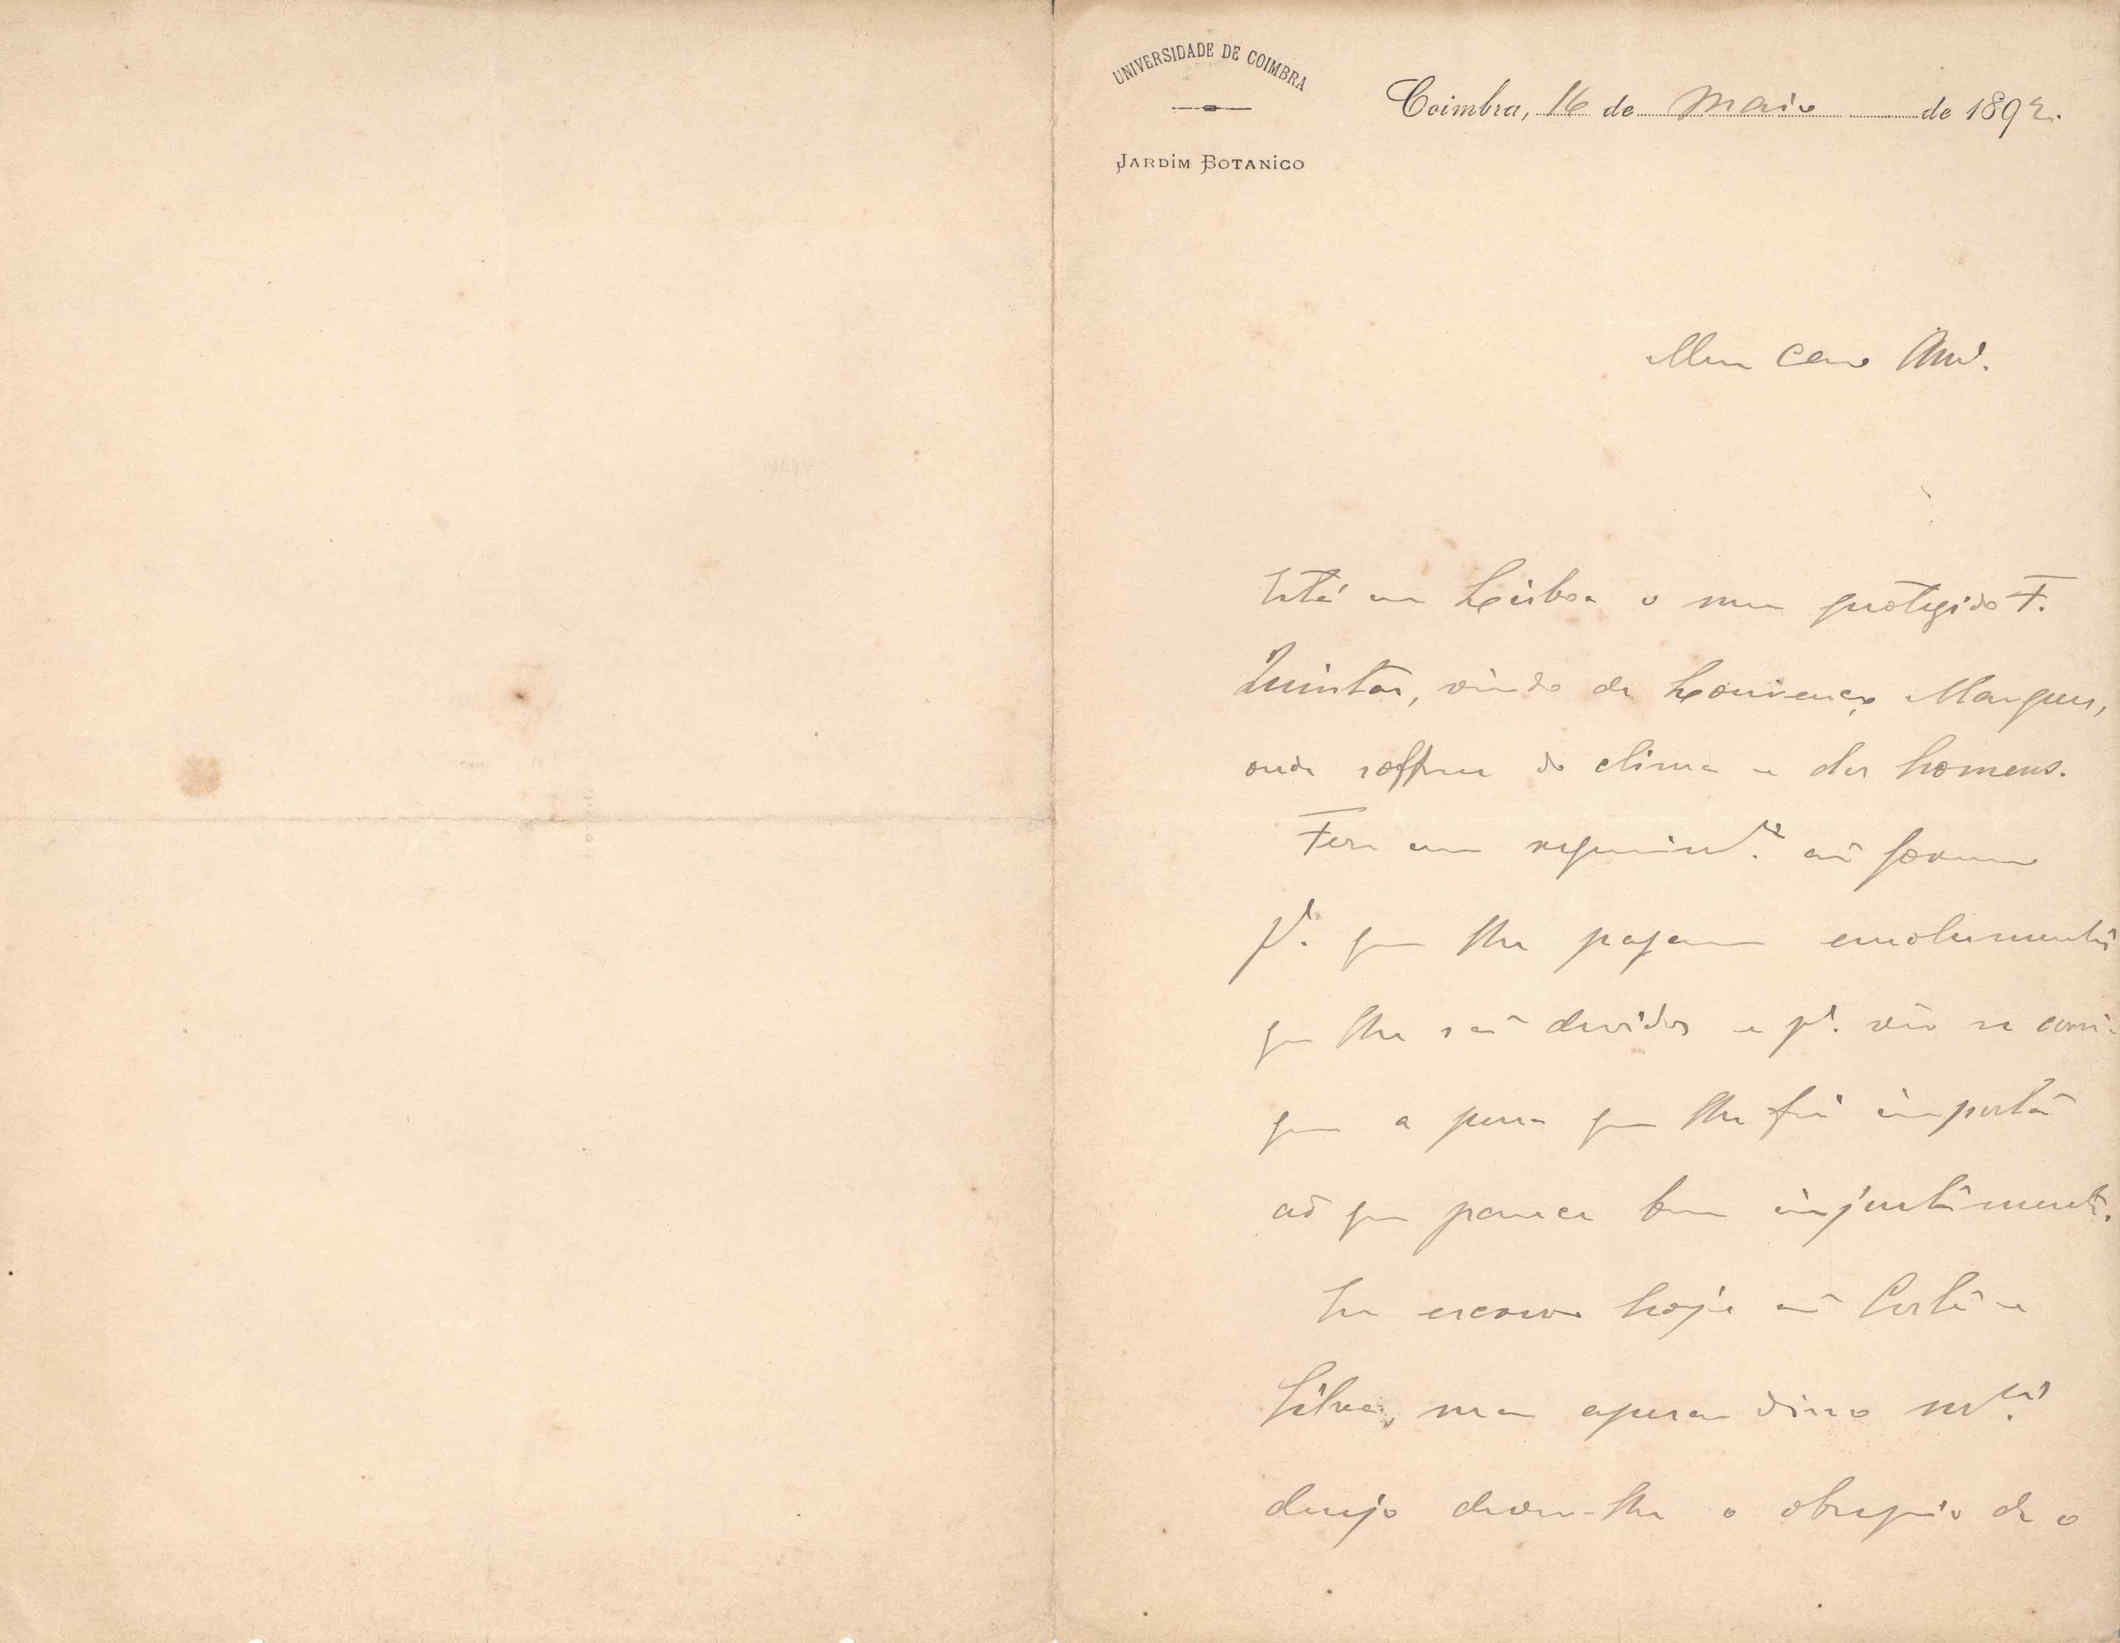 UNIVERSIDADE DE COIMBRA
JARDIM BOTANICO
Coimbra, 16 de Maio de 1892.
Meu caro Amº.
Está em Lisboa o meu protegido F.
Quintas, vindo de Lourenço Marques,
onde soffreu do clima e dos homens.
Fez um requerimto. ao governo
pª. que lhe pagem emolumentos
que lhe são devidos e pª. vêr se conse-
gue a pena que lhe foi imposta
ao que parece bem injustamente.
Eu escrevo hoje ao Costa e
Silva, mas apesar disso mto.
desejo dever-lhe o obsequio de o